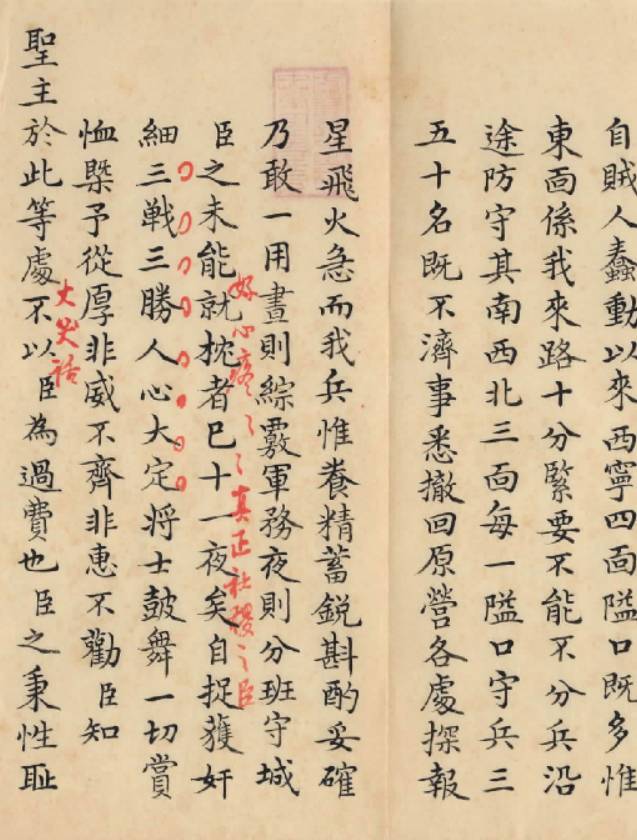 自賊人蠢動以來西寧四面隘口既多惟
東面係我來路十分緊要不能不分兵沿
途防守其南西北三面每一隘口守兵三
五十名既不濟事悉撤回原營各處探報
星飛火急而我兵惟養精蓄銳斟酌妥確
乃敢一用晝則綜覈軍務夜則分班守城
好心疼〻〻真正社稷之臣
臣之未能就枕者已十一夜矣自捉獲奸
細三戦三勝人心大定将士鼓舞一切賞
恤槩予從厚非威不齊非惠不勸臣知
大笑話
聖主於此等處不以臣為過費也臣之秉性耻